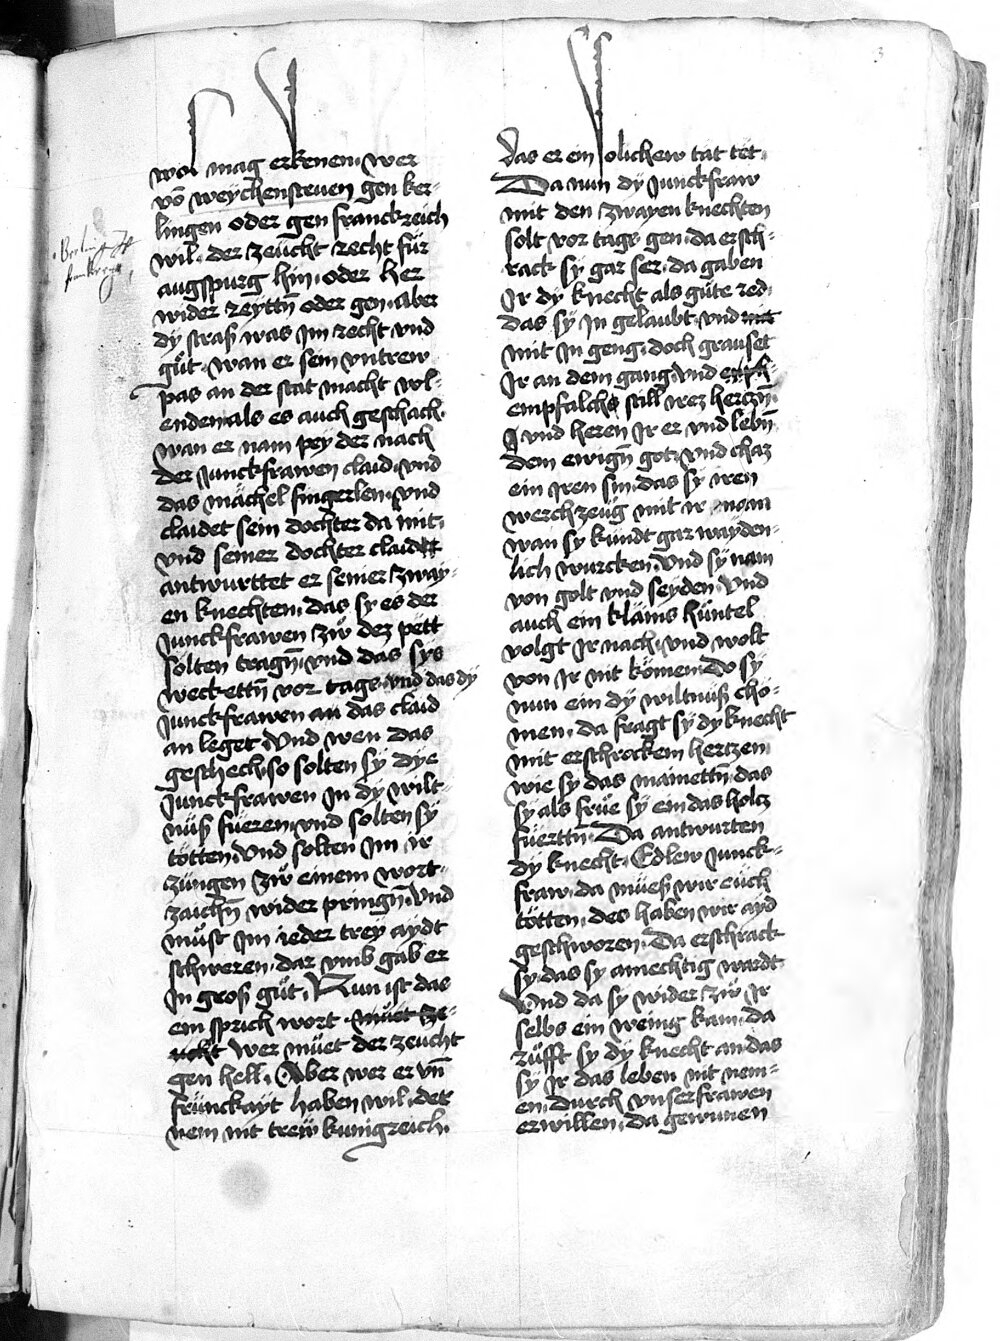 3
wol mag erkenem. wer
võ weyhensteuen gen ker-
lingen oder gen franckreich
wil. der zeücht recht für
augspurg hin. oder her
wider zeyttñ oder gen. aber
dÿ straß was Jm recht vnd
gůt. wan er sem vntrew
pas an der stat macht vol-
enden. als es auch geschach.
wan er nam pey der nach
der Junckfrawen claid. vnd
das mächel fingerlen. vnd
claidet sein dochter da mit.
vnd seiner dochter claid
antwurttet er seiner zway-
en knechten. das sy es der
Junckfrawen zů dez pett
solten tragñ. vnd das sys
weckettñ vor tage. vnd das dÿ
Junckfrawen an das claid
an leget. Vnd wen das
geschech. so solten sÿ dye
Junckfrawen Jn dÿ wilt-
nüß füeren. vnd solten sÿ
tötten. Vnd solten Jm ir
züngen zů einem wort-
zaichñ wider pringñ. Vnd
můst Jm ieder treÿ aÿdt
schweren. dar vmb gab er
Jn groß gůt. Nun ist das
em sprich wort. müet ze-
ücht wer müet der zeucht
gen hell. Aber wer er vñ
frünckayt haben wil. der
nem nit treÿ kunigreich.
das er ein solichew tät tet.
Da nun dÿ Junckfraw
mit den zwayen knechten
solt vor tage gen. da ersch-
rack sÿ gar ser. da gaben
Jr dÿ knecht als güte red.
das sÿ Jn gelaubt. vnd mit
mit Jn geng. doch grauset
Jr an dem gang. Vnd emph-
empfalch still irez hertzñ.
vnd heren Jr er vnd lebñ
dem ewigñ got. Vnd chaz
ein Jren sin. das sÿ iren
werchzeug mit ir nam
wan sy kundt gar wayden-
lich wurcken. Vnd sÿ nam
von golt vnd seyden. Vnd
auch ein kläins hüntel
volgt Jr nach. Vnd wolt
von Jr nit kömen. Do sÿ
nun ein dÿ wiltnüß cho-
men. da fragt sÿ dy knecht
mit erschrockem hertzen.
wie sÿ das mainettñ. das
sÿ als früe sÿ ein das holcz
füerttñ. Da antwurten
dÿ knecht. Edlew Junck-
fraw. da müeß wir eüch
tötten. des haben wir ayd
geschworen. Da erschrack
sÿ. das sy amechtig wardt
Vnd da sÿ wider zů Jr
selbs ein weinig kam. da
rüfft sÿ dÿ knecht an. das
sÿ Jr das leben nit nem-
en. durch vnser frawen
er willen. da gewunen